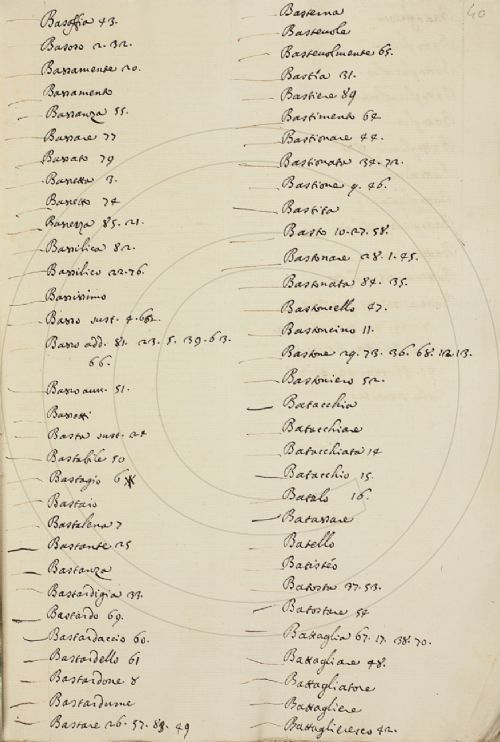 Basoffia 43.
Basoso 2. 32.
Bassamente 20.
Bassamento
Bassanza 55.
Bassare 77
Bassato 79
Bassetta 3.
Bassetto 74
Bassezza 85. 21.
Bassilica 82.
Bassilico 22. 76.
Bassissimo
Basso sust. 4. 62.
Basso add. 81. 23. 5. 39. 63.
66.
Basso auu. 51.
Bassotti
Basta sust. 24
Bastabile 50
Bastagio 6
Bastaio
Bastalena 7
Bastante 25
Bastanza
Bastardigia 33.
Bastardo 69.
Bastardaccio 60.
Bastardello 61
Bastardone 8
Bastardume
Bastare 26. 57. 89. 49
40
Basterna
Basteuole
Basteuolmente 65.
Bastia 31.
Bastiere 89
Bastimento 64
Bastionare 44.
Bastionata 34. 72.
Bastione 9. 46.
Bastita
Basto 10. 27. 58.
Bastonare 28. 1. 45.
Bastonata 84. 35.
Bastoncello 47.
Bastoncino 11.
Bastone 29. 73. 36. 68. 12. 13.
Bastoniero 52.
Batacchia
Batacchiare
Batacchiata 14
Batacchio 15.
Batalo 16.
Batassare
Batello
Batisteo
Batosta 37. 53.
Batostare 54
Battaglia 67. 17. 38. 70.
Battagliare 48.
Battagliatore
Battagliere
Battaglieresco 42.